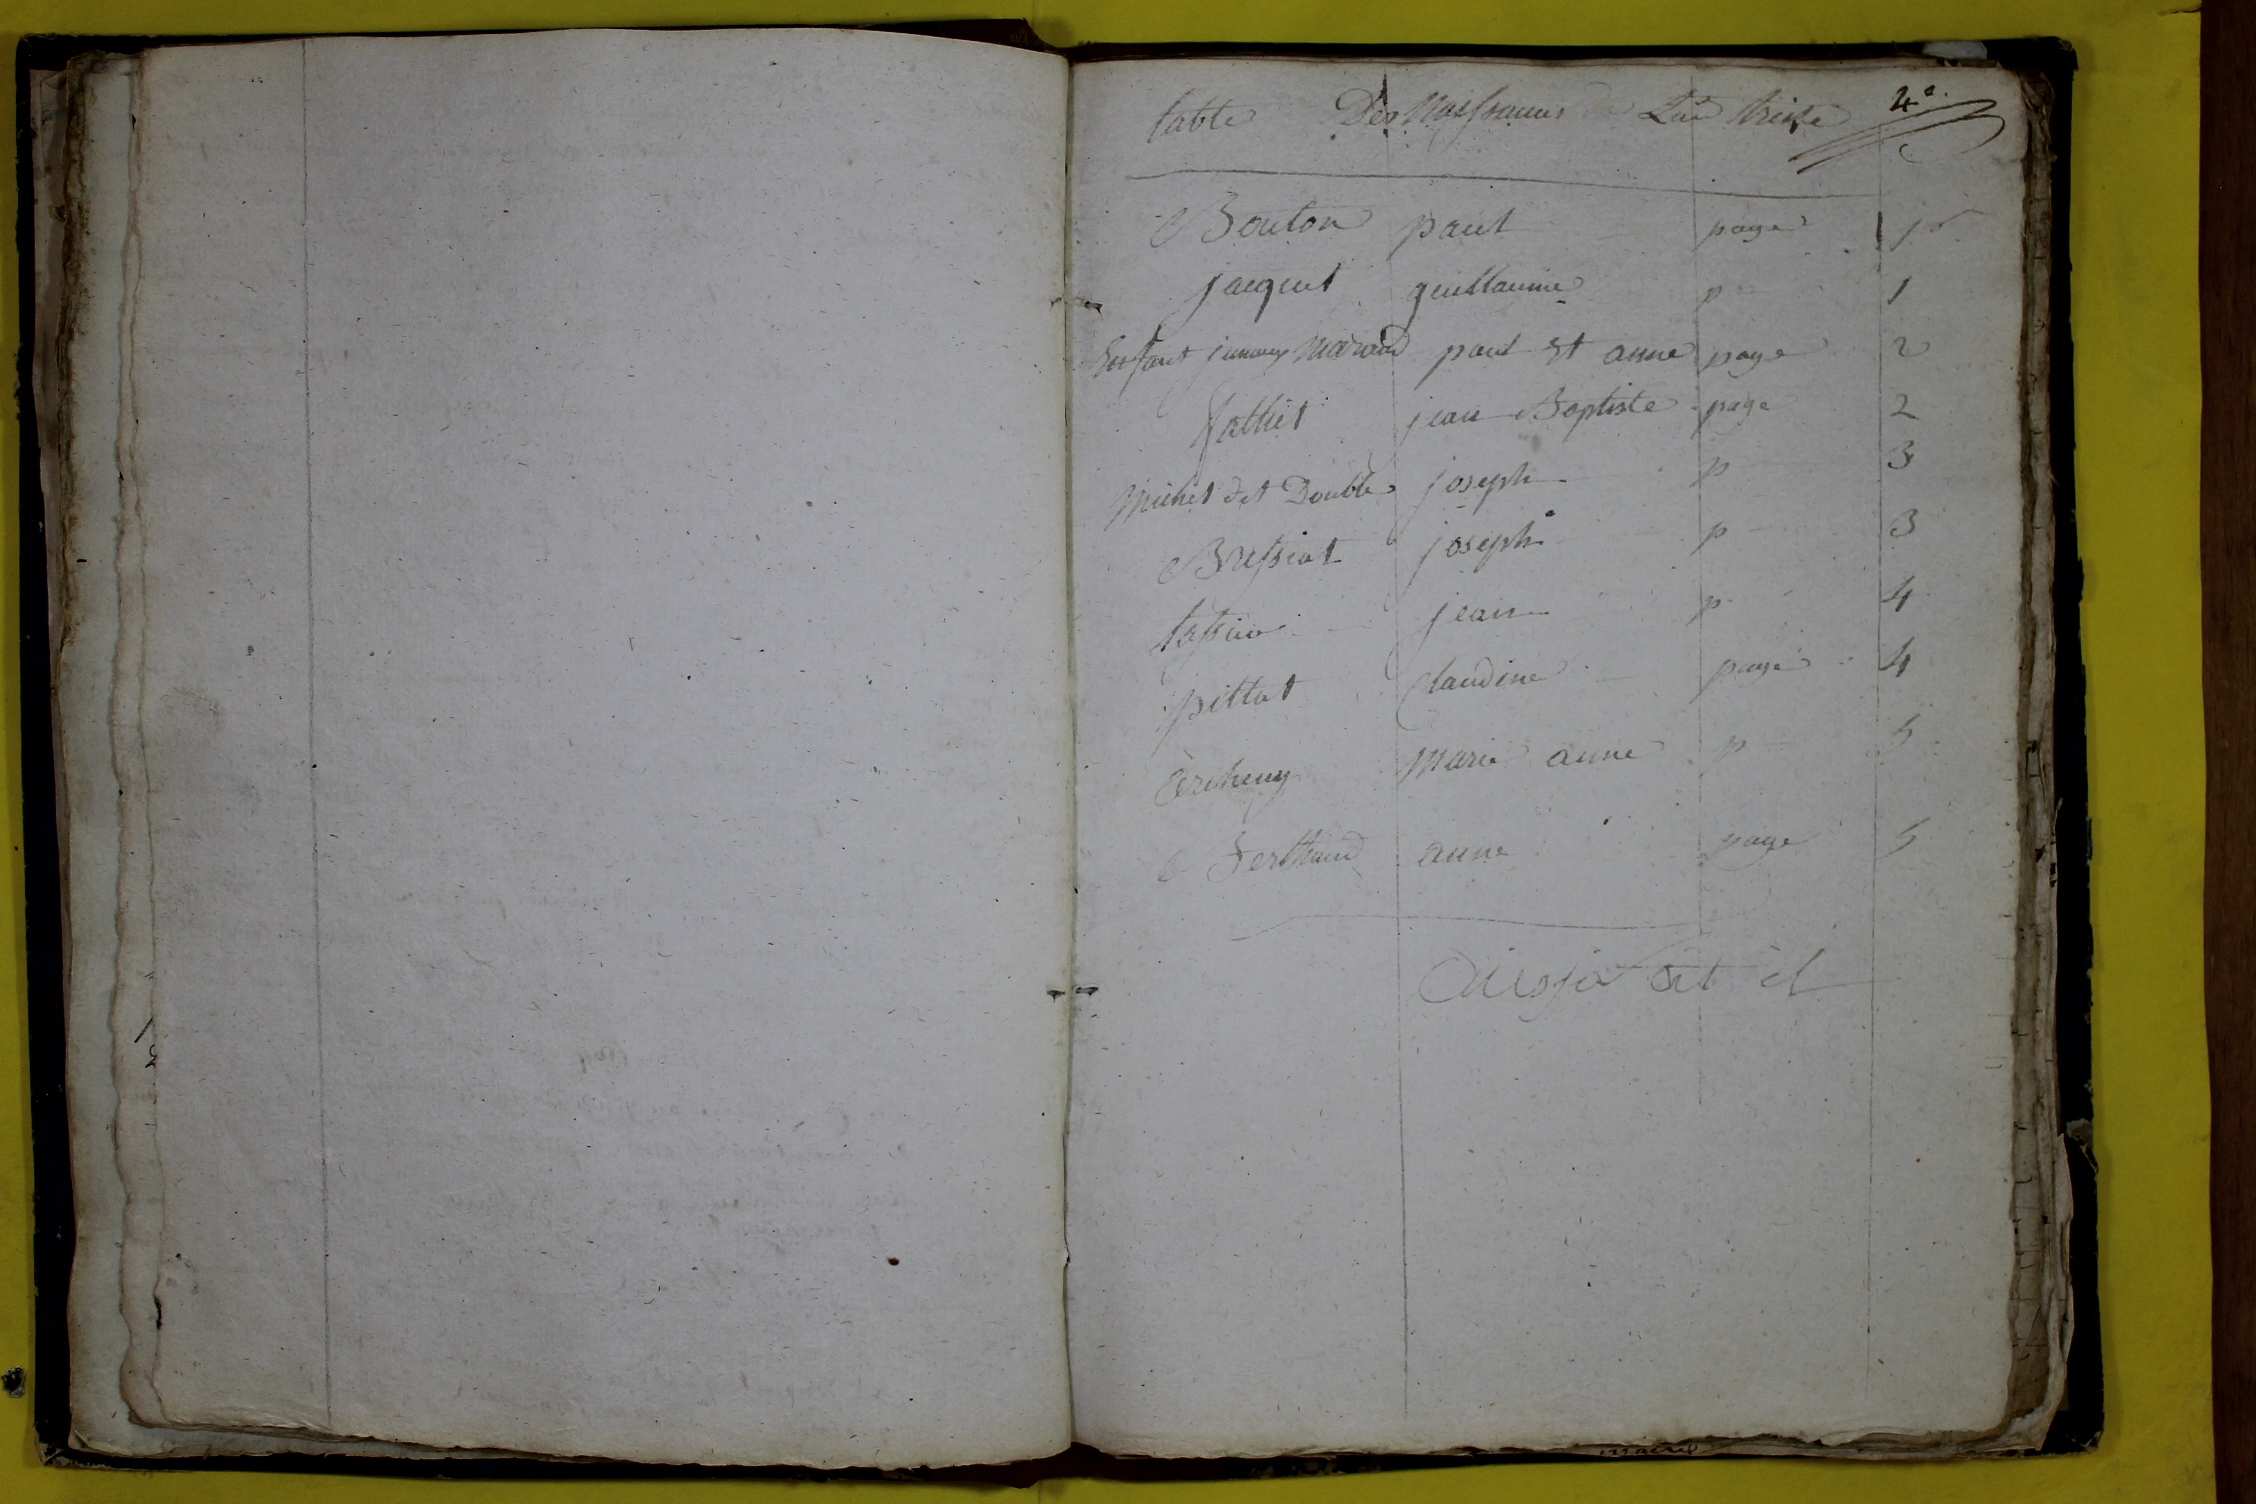 table Des Naissances de L'an treize 4e.
Bouton paul page 1r
jacquet guillaume p 1
Enfant jumeaux Maraud paul Et anne page 2
jean Baptiste page 2
Michel dit Double joseph p 3
Bressiat joseph p 3
tassin jean p 4
pillat Claudine page 4
marie anne p 5
Ferthaud anne page 5